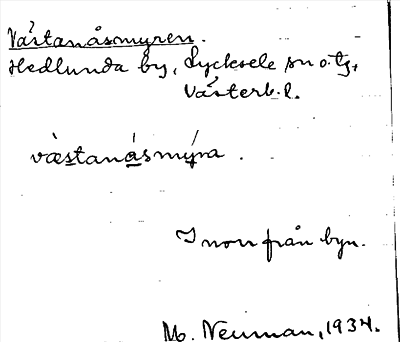 Västanåsmyren.
Hedlunda by, Lycksele sn o. tg,
Västerb. l.
västanåsmýra .
I norr från byn.
M. Neuman, 1934.